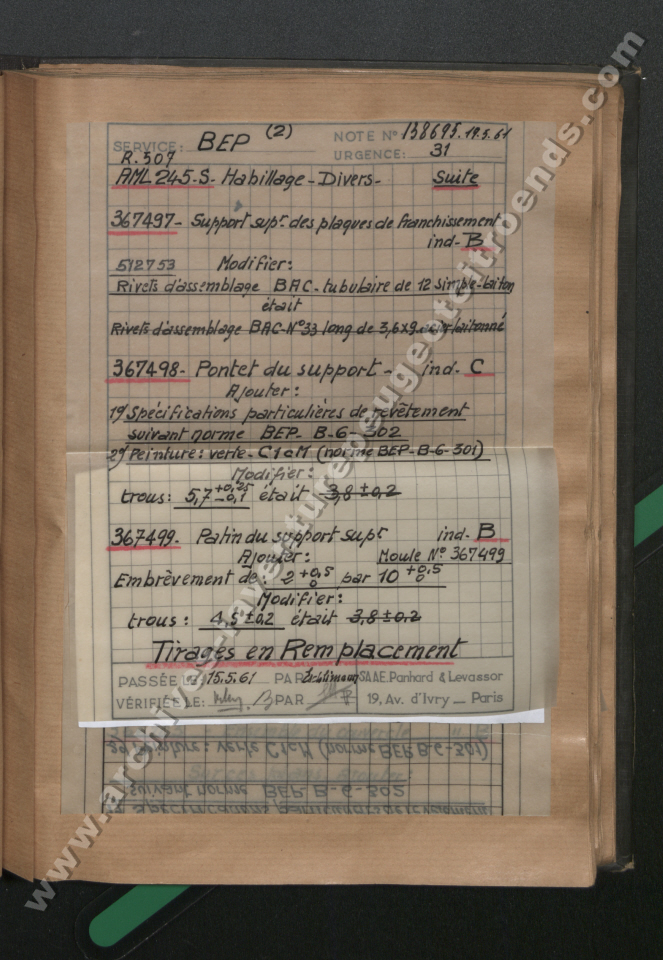 SERVICE: BEP (2) NOTE N° 138695 19.5.61
R.507 URGENCE: 31
AML 245-S- Habillage-Divers- Suite
367497- Support supr des plaques de franchissement
ind- B
512753 Modifier:
Rivets d'assemblage BAC-tubulaire de 12 simple-laiton
était
Rivets d'assemblage BAC-N°33 long de 3,6x9 acier laitonné
367498- Pontet du support- ind- C
Ajouter:
1°/ Spécifications particulières de revêtement
suivant norme BEP- B-6-302
2°/ Peinture: verte- C1aM (norme BEP-B-6-301)
Modifier:
trous: 5,7 +0,25 -0,1 était 3,8 ±0,2
367499- Patin du support supr ind- B
Ajouter: Moule N° 367499
Embrèvement de: 2 +0,5 0 par 10 +0,5 0
Modifier:
trous: 4,5 ±0,2 était 3,8 ±0,2
Tirages en Remplacement
PASSÉE LE: 15.5.61 PAR SAAE.Panhard & Levassor
VÉRIFIÉE LE: PAR 19, Av. d'Ivry — Paris
2°/ Peinture: verte C1aM (norme BEP B-6-301)
suivant norme BEP B-6-302
1°/ Spécifications particulières de revêtement
www.archives-laventurepeugeotcitroends.com